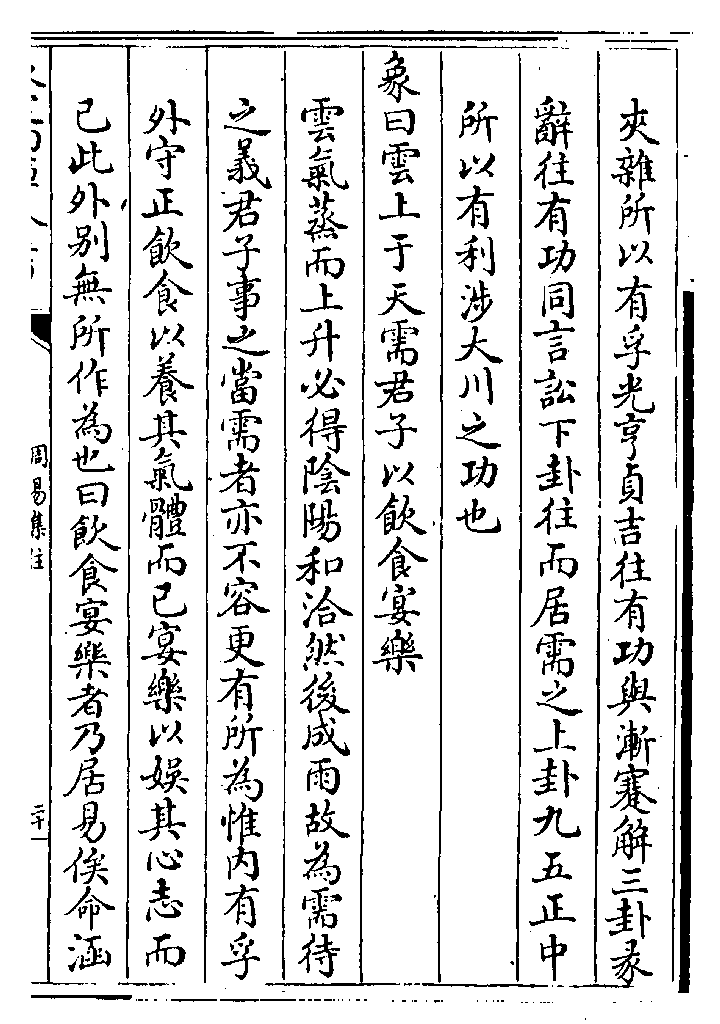 夾雜所以有孚光亨貞吉往有功與漸蹇解三卦彖
辭往有功同言訟下卦往而居需之上卦九五正中
所以有利涉大川之功也
象曰雲上于天需君子以飲食宴樂
雲氣蒸而上升必得陰陽和洽然後成雨故為需待
之義君子事之當需者亦不容更有所為惟内有孚
外守正飲食以養其氣體而已宴樂以娛其心志而
已此外别無所作為也曰飲食宴樂者乃居易俟命涵
周易集註
二十一